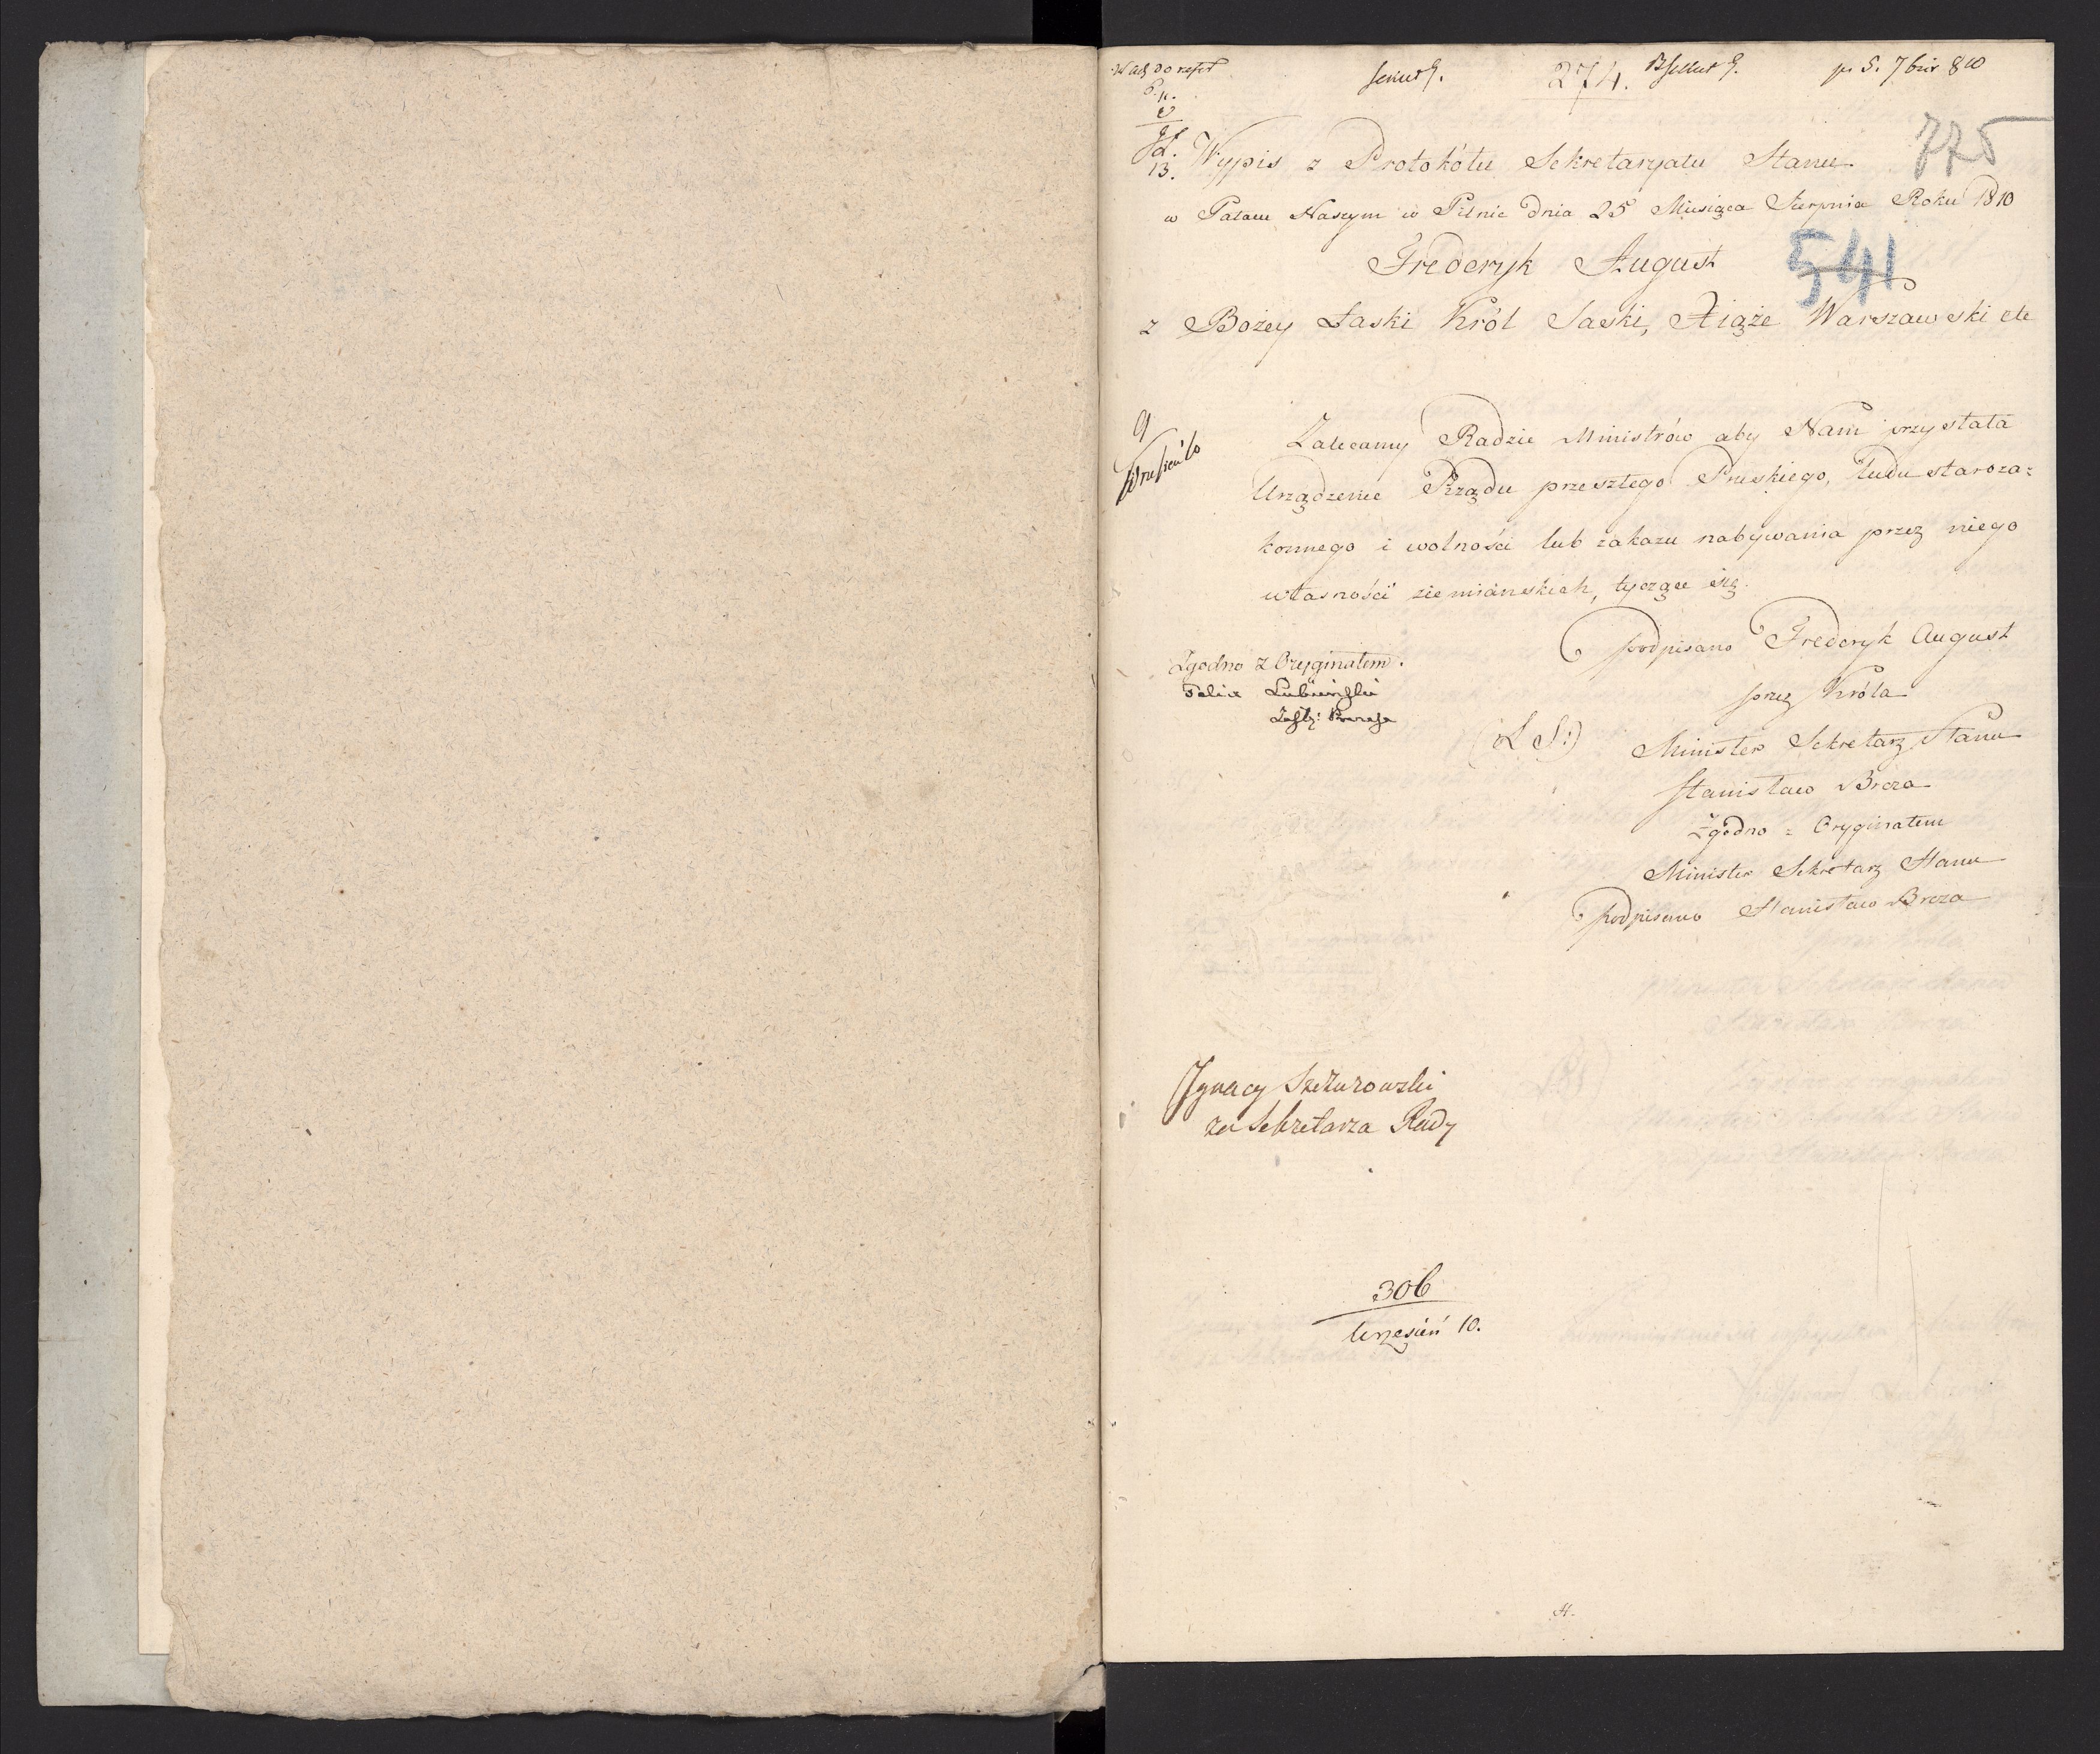 274.
p. 5. 7bir 810
775
13. Wypis z Protokółu Sekretaryatu Stanu
w Pałacu Naszym w Pilnic Dnia 25 Miesiąca Sierpnia Roku 1810
Fryderyk August
541
z Bożey Łaski Król Saski, Xiąże Warszawski etc
9
Zalecamy Radzie Ministrów aby Nam przysłała
Urządzenie Rządu przeszłego Pruskiego, ludu staroza=
konnego i wolności lub zakazu nabywania przez niego
własności ziemiańskich, tyczące się.
podpisano Frederyk August
Zgodno z Oryginałem.
Felix Lubieński
przez Króla
(L S:)
Minister Sekretarz Stanu
Stanisław Breza
Zgodno z Oryginałem
Minister Sekretarz Stanu
podpisano Stanisław Breza
Ignacy
za Sekretarza Rady
306
Wrzesień 10.